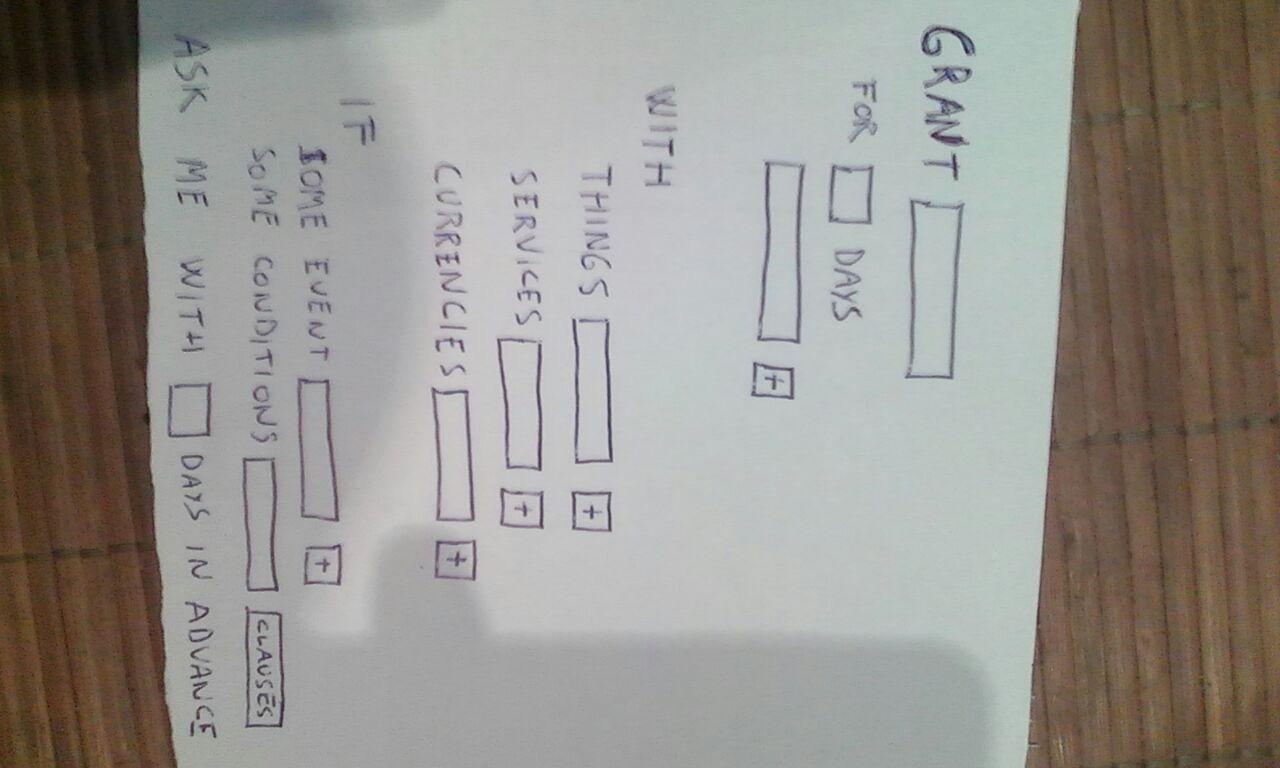 GRANT
FOR DAYS
+
WITH
THINGS +
SERVICES +
CURRENCIES +
IF
SOME EVENT +
SOME CONDITIONS CLAUSES
ASK ME WITH DAYS IN ADVANCE